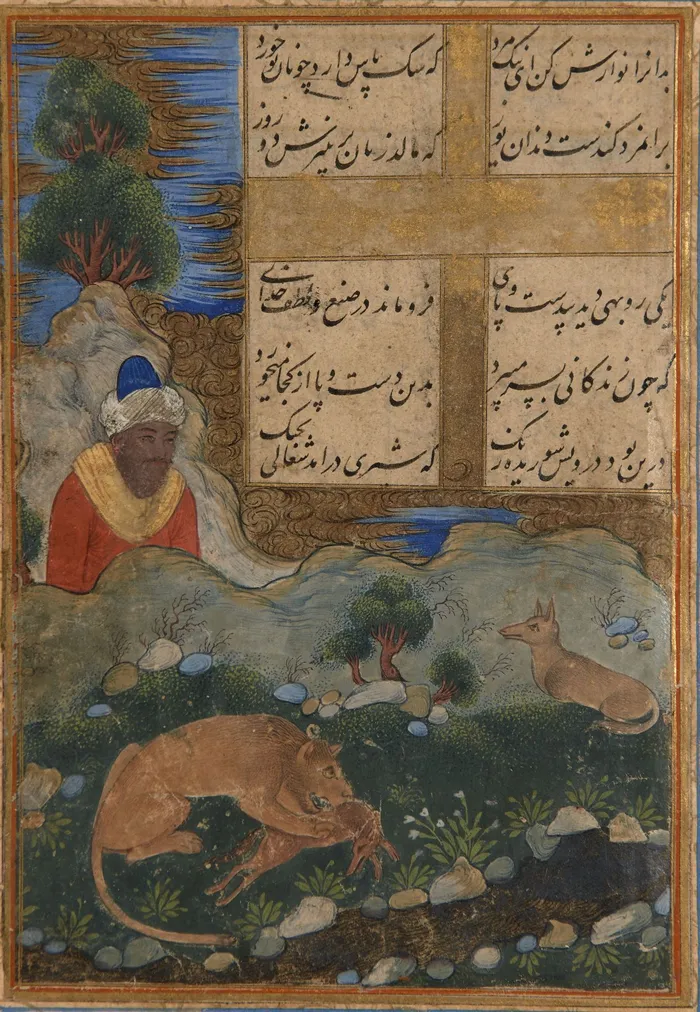 بدانرا نوازش کن ای نیک مرد که سگ پاس دارد چو نان تو خورد
برانمرد کندست دندان یوز که مالد زبان بر پنیرش دو روز
یکی روبهی دید بیدست و پای فرو ماند در صنع و لطف خدای
که چون زندگانی بسر میبرد بدین دست و پا از کجا میخورد
درین بود درویش شوریده رنگ که شیری درامد شغالی بچنگ